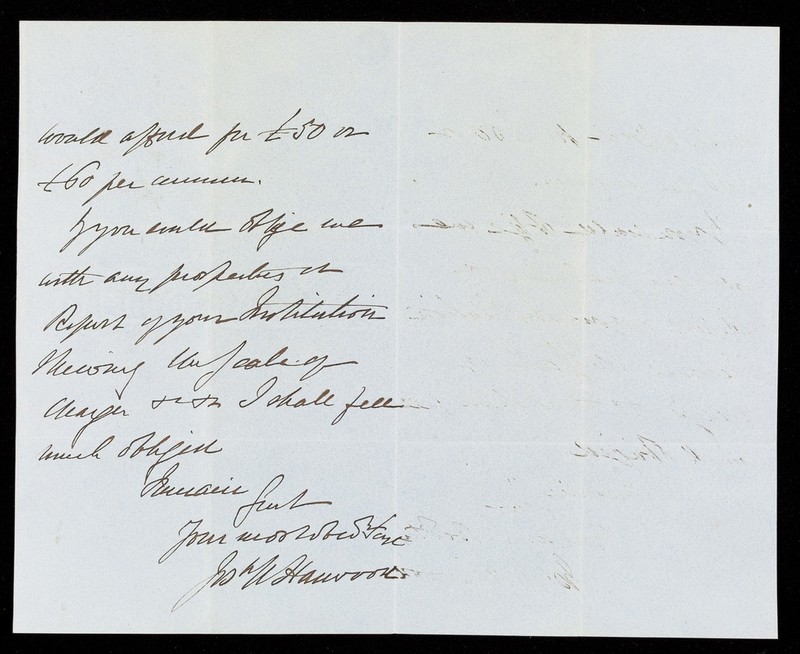 would afford for £50 or
£60 per annum.
If you could oblige me
with any prospectus or
Report of your Institution
shewing the Scale of
charges &c &c I shall feel
much obliged
I remain
Your most obed Serv
Jos W Harwood